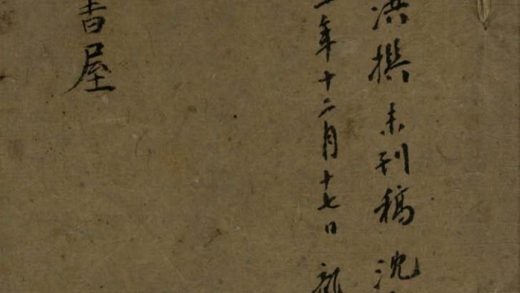 洪撰未刊稿沈
年十二月十七日
書屋